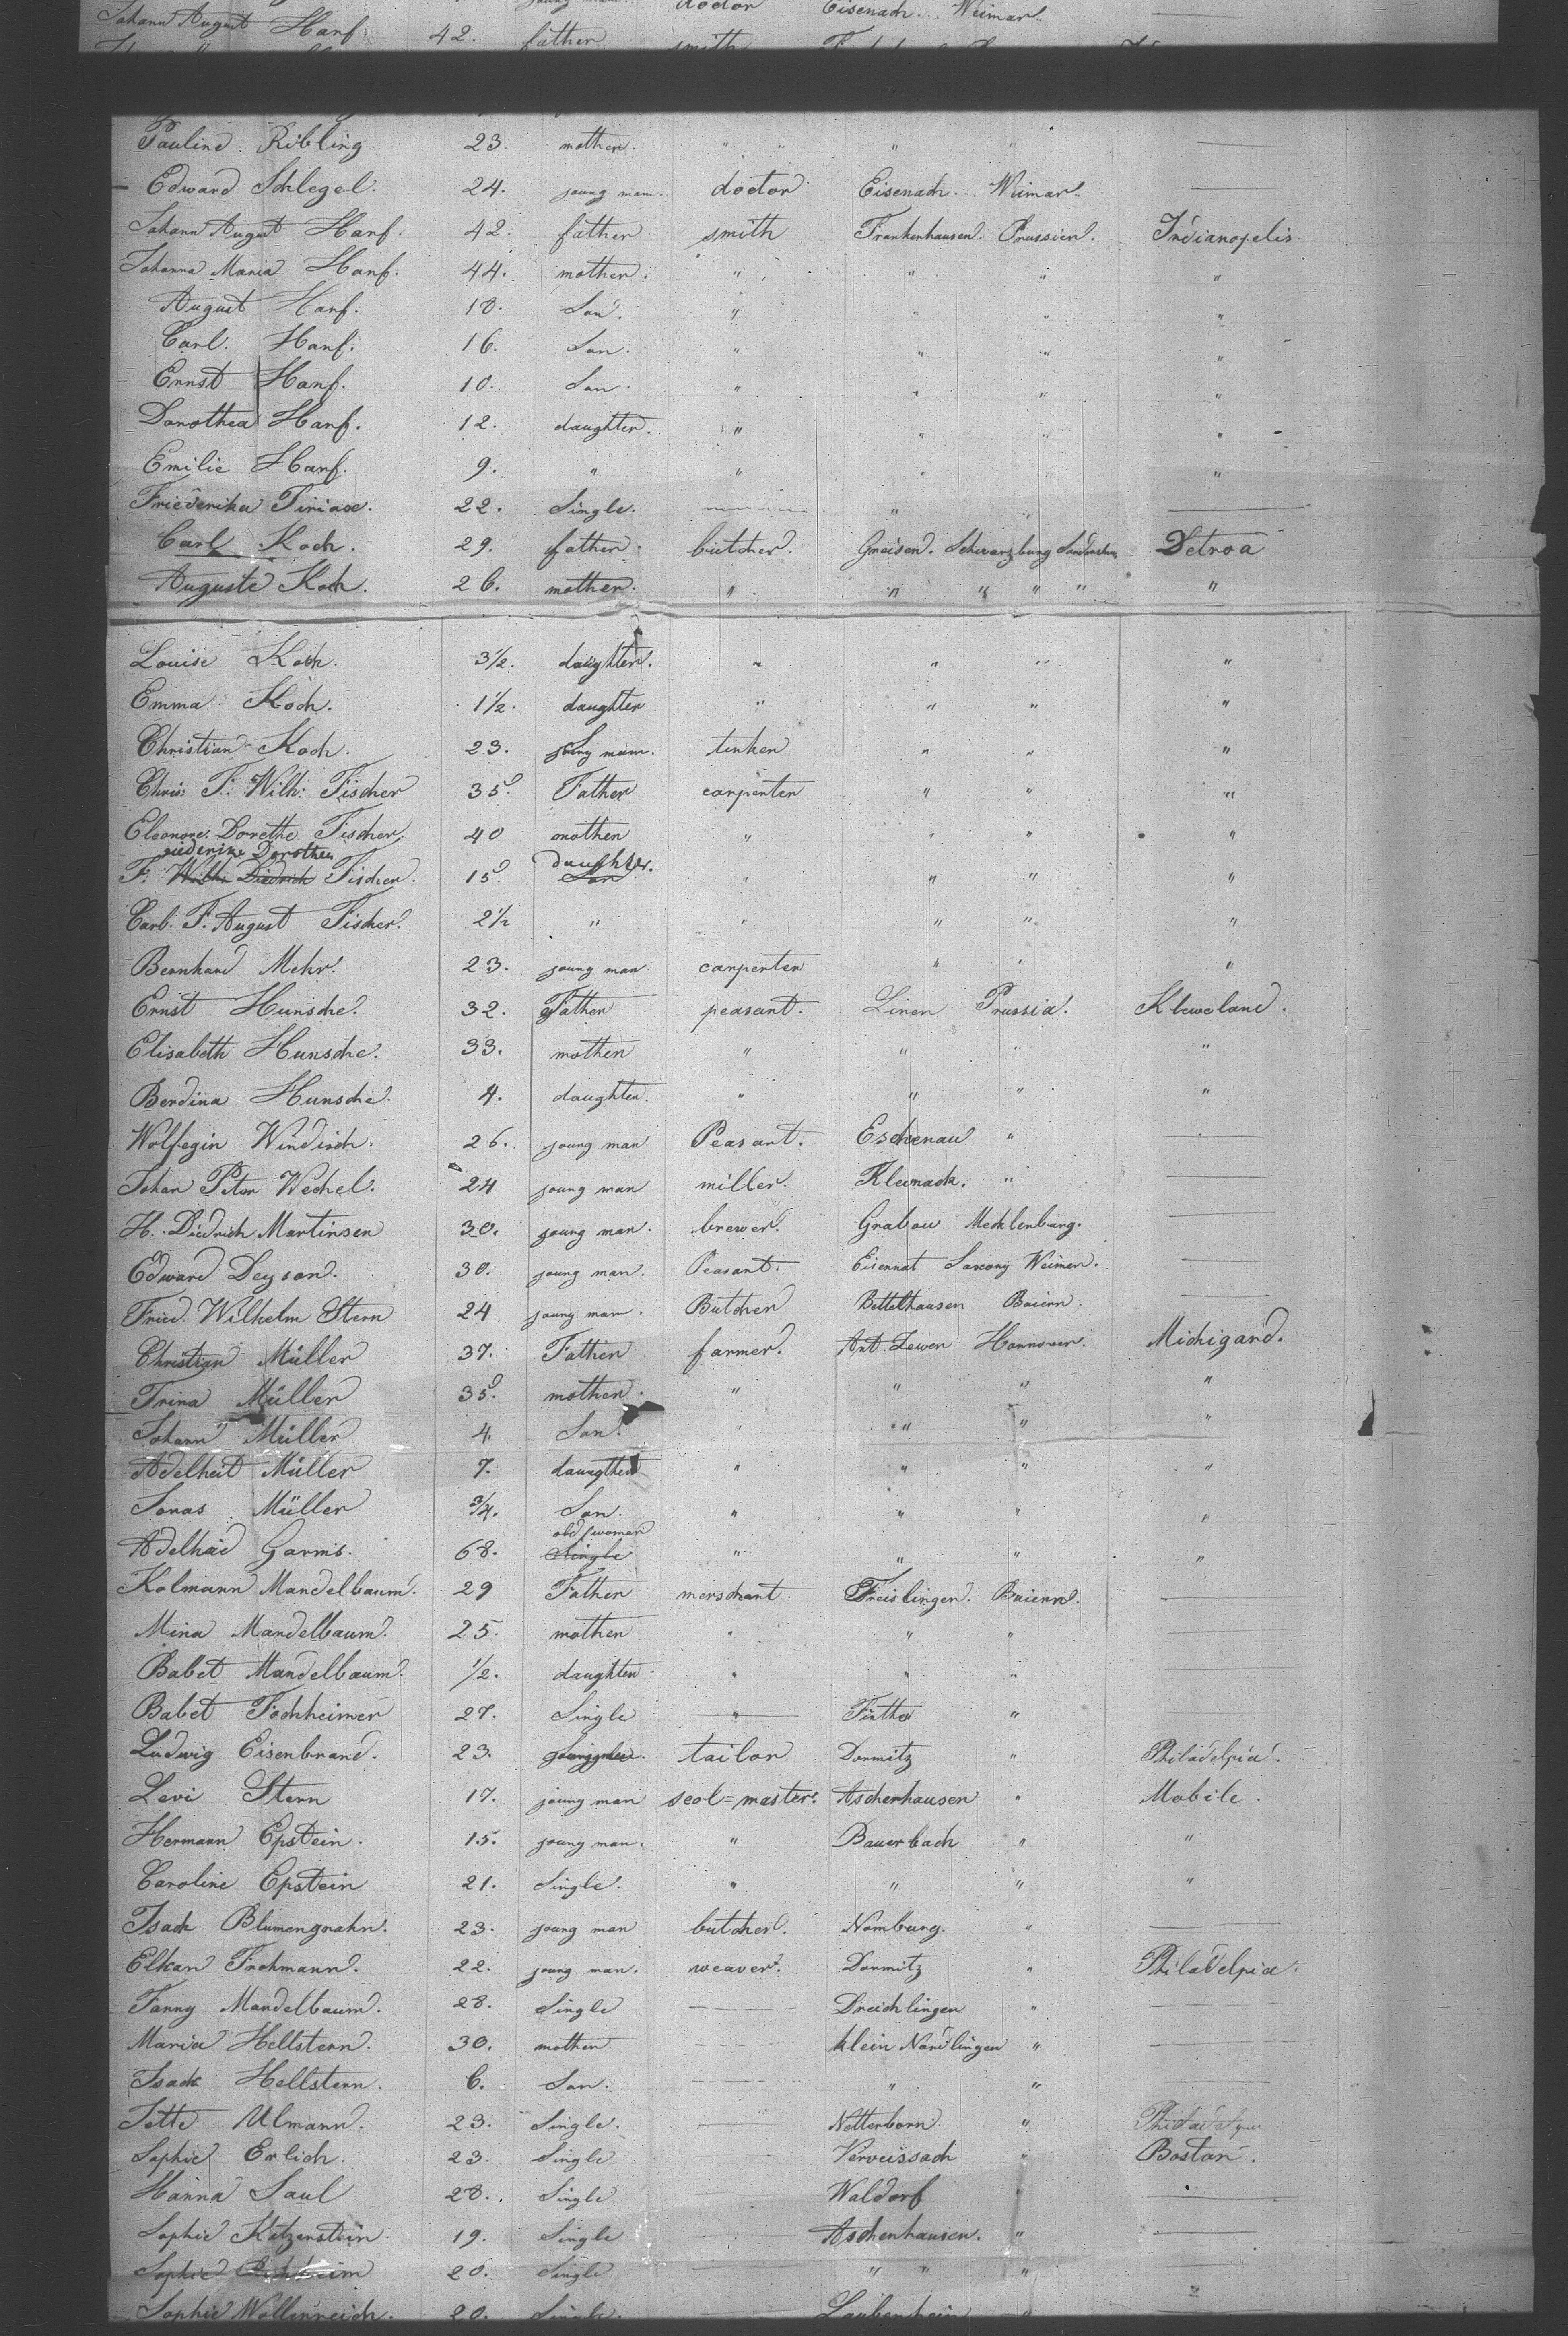 doctor Eisenach Weimar.
Johann August Hanf 42. father smith
Pauline Ribling 23. mother. " " " "
Edward Schlegel. 24. young man. doctor Eisenach. Weimar.
Johann August Hanf. 42. father smith Frankenhausen. Prussien. Indianopelis.
Johanna Maria Hanf. 44. mother. " " " "
August Hanf. 18. Son. " " " "
Carl. Hanf. 16. Son. " " " "
Ernst Hanf. 10. Son. " " " "
Dorothea Hanf. 12. daughter. " " " "
Emilie Hanf. 9. " " " " "
Friederika Tiriax. 22. Single. "
Carl Koch. 29. father. butcher. Greisen. Schwarzburg Detroa
Auguste Koch. 26. mother. " " " " " "
Louise Koch. 3½. daughter. " " " "
Emma Koch. 1½. daughter " " " "
Christian Koch. 23. young man. tinker " " "
Chris: F. Wilh: Fischer 35. Father carpenter " " "
Eleonore. Dorethe Fischer. 40 mother " " " "
riederike Dorothea daughter.
F. Wilh. Diedrich Fischer. 15. Son " " " "
Carl. F. August Fischer. 2½ " " " " "
Bernhard Mehr. 23. young man. carpenter " " "
Ernst Hunsche. 32. Father peasant. Linen Prussia. Kleweland.
Elisabeth Hunsche. 33. mother " " " "
Berdina Hunsche. 4. daughter. " " " "
Wolfegin Windisch. 26. young man Peasant. Eschenau "
Johan Peter Wechel. 24 young man miller. "
H. Diedrich Martinsen 30. young man. brewer. Grabow Mecklenburg.
Edward Deyson. 30. young man. Peasant. Eisennat Saxony Weimer.
Fried. Wilhelm Stern 24 young man. Butcher Bettelhausen Baiern.
Christian Müller 37. Father farmer. Amt. Zewen Hannover. Michigand.
Trina Müller 35. mother. " " " "
Johann Müller 4. Son. " " " "
Adelheit Müller 7. daungther " " " "
Jonas Müller ¾. Son. " " " "
old women
Adelheid Garms. 68. Single " " " "
Kolmann Mandelbaum. 29 Father merschant. Treislingen. Baiern.
Mina Mandelbaum. 25. mother " " "
Babet Mandelbaum. ½. daughter " " "
Babet Fochheimer 27. Single " Fürther "
Ludwig Eisenbrand. 23. tailor Dormitz " Philadelpia.
Levi Stern 17. young man scol=master. Ascherhausen " Mobile.
Hermann Epstein. 15. young man. " Bauerbach " "
Caroline Epstein 21. Single. " " " "
Isack Blumengrahn. 23. young man butcher. Nomburg. "
Elkan Frohmann. 22. young man. weaver. Dormitz " Philadelpia.
Fanny Mandelbaum. 28. Single Dreichlingen "
Maria Hellstern. 30. mother klein Nördlingen "
Isack Hellstern. 6. Son. " "
Jette Ulmann. 23. Single. Netterborn "
Sophie Erlich. 23. Single Verweissach " Boston.
Hanna Saul 28. Single Waldorf "
Sophie Katzenstein 19. Single Aschenhausen. "
Sophie 20. Single " " "
Sophie Wallenreich. 20. Single. Laubenhein "